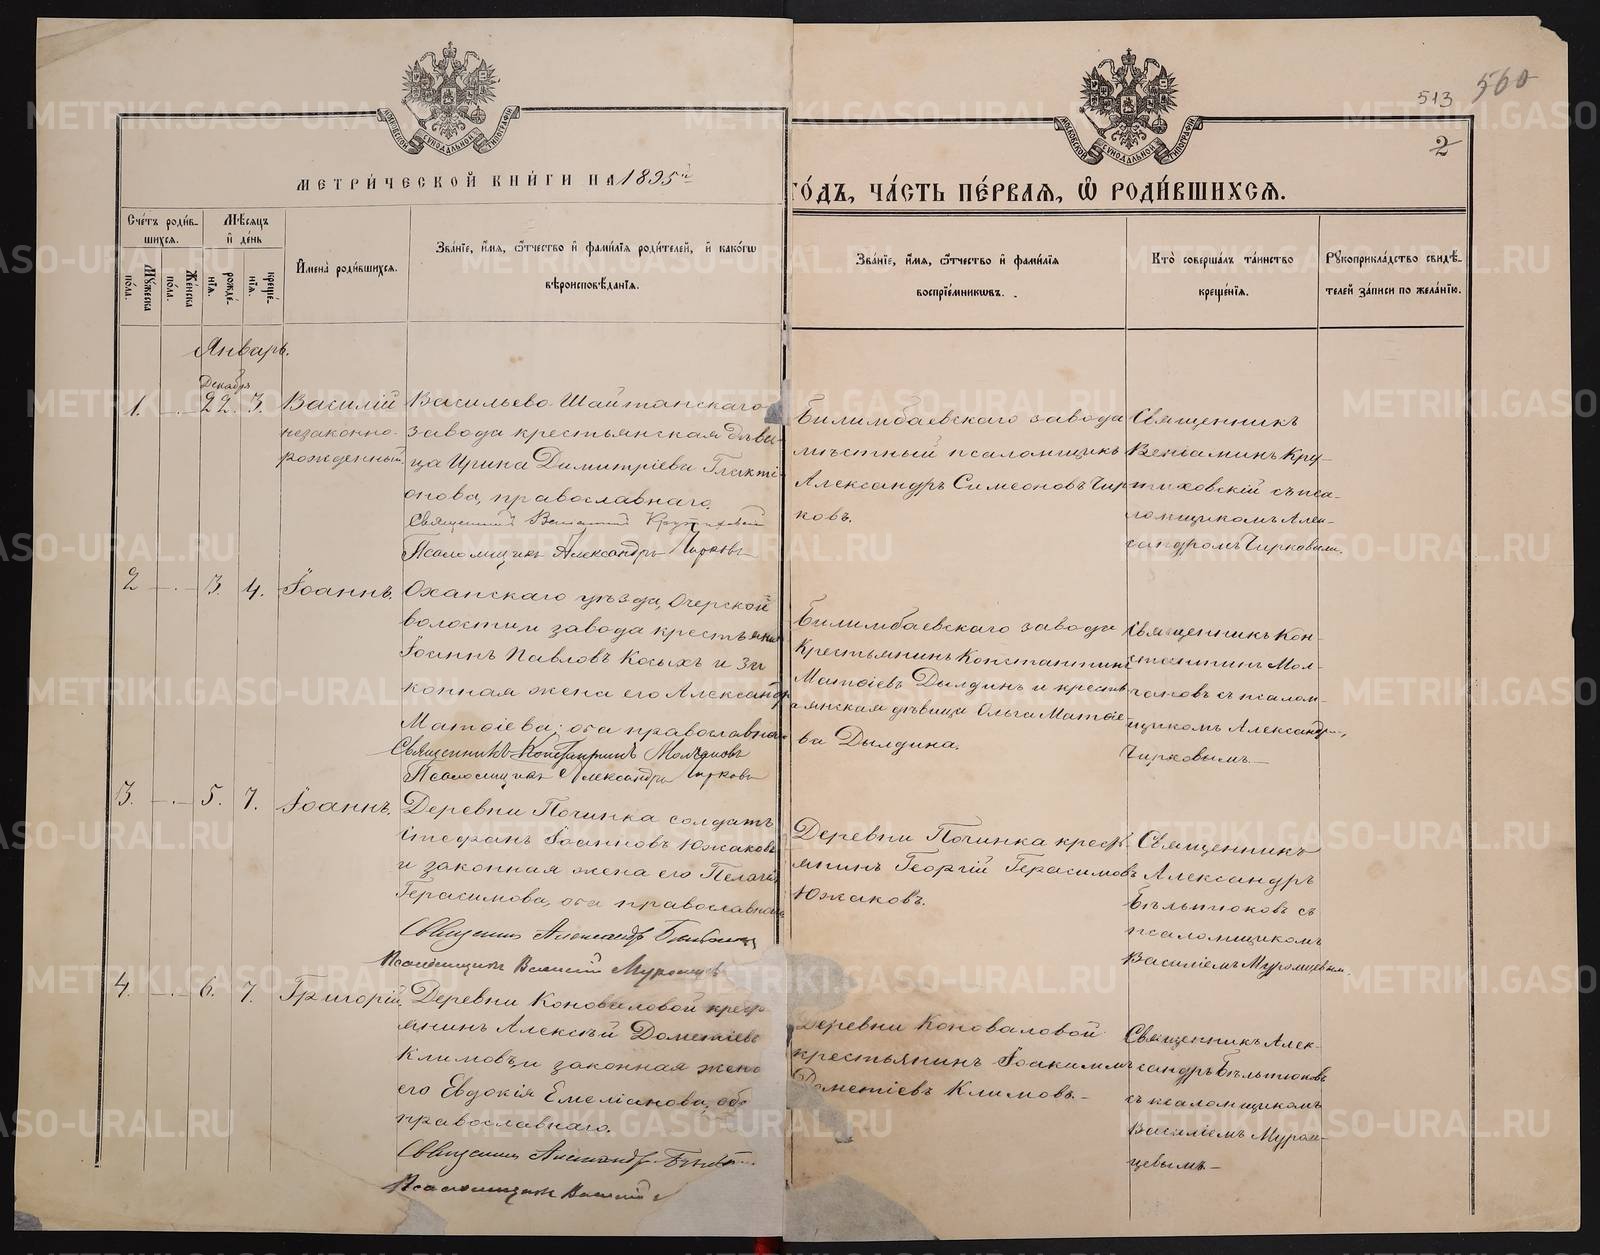 513 560
2
МОСКОВСКОЙ СѴНОДАЛЬНОЙ ТИПОГРАФІИ
МОСКОВСКОЙ СѴНОДАЛЬНОЙ ТИПОГРАФІИ
МЕТРИ́ЧЕСКОЙ КНИ́ГИ НА 1895й
ГО́ДЪ, ЧА́СТЬ ПЕ́РВАЯ, Ѡ РОДИ́ВШИХСЯ.
Сче́тъ роди́в-
шихся.
Мѣсяцъ
и де́нь
Му́жеска
по́ла.
Же́нска
по́ла.
рожде-
нїя.
креще́-
нїя.
Имена̀ роди́вшихся.
Зва́нїе, и́мя, ѻ́тчество и фами́лїя роди́телей, и како́гѡ
вѣроисповѣ́данїя.
Зва́нїе, и́мя, ѻ́тчество и фами́лїя
воспрїе́мникѡвъ.
Кто̀ соверша́лъ та́инство
креще́нїя.
Рукоприкла́дство свидѣ́-
телей за́писи по жела́нїю.
Январь.
Декабря
1. 22. 3. Василій
незаконно-
рожденный
Васильево-Шайтанскаго
завода крестьянская дѣви-
ца Ирина Димитріева Галкті-
онова, православнаго.
Священникъ Веніаминъ Крутиховскій
Псаломщикъ Александръ Чирковъ
Билимбаевскаго завода
мѣстный псаломщикъ
Александръ Симеоновъ Чир-
ковъ.
Священникъ
Веніаминъ Кру-
тиховскій съ пса-
ломщикомъ Алек-
сандромъ Чирковымъ.
2 3. 4. Іоаннъ.
Оханскаго уѣзда, Очерской
волости и завода крестьянинъ
Іоаннъ Павловъ Косыхъ и за-
конная жена его Александра
Матѳіева; оба православнаго
Священникъ Константинъ Молчановъ
Псаломщикъ Александръ Чирковъ
Билимбаевскаго завода
крестьянинъ Константинъ
Матѳіевъ Дылдинъ и кресть-
янская дѣвица Ольга Матѳіе-
ва Дылдина.
Священникъ Кон-
стантинъ Мол-
чановъ съ псалом-
щикомъ Александр.
Чирковымъ
3. 5. 7. Іоаннъ.
Деревни Починка солдатъ
Стефанъ Іоанновъ Южаковъ
и законная жена его Пелагія
Герасимова, оба православнаго
Священникъ Александръ Бѣльтюковъ
Псаломщикъ Василій Муромцевъ
Деревни Починка крест-
янинъ Георгій Герасимовъ
Южаковъ.
Священникъ
Александръ
Бѣльтюковъ съ
псаломщикомъ
Василіемъ Муромцевым.
4. 6. 7. Григорій.
Деревни Коноваловой крест-
янинъ Алексѣй Дометіевъ
Климовъ и законная жена
его Евдокія Емеліанова, оба
православнаго.
Священникъ Александръ
Псаломщикъ Василій
Деревни Коноваловой
крестьянинъ Іоакимъ
Дометіевъ Климовъ.
Священникъ Алек-
сандръ Бѣльтюковъ
съ псаломщикомъ
Василіемъ Муром-
цевымъ
METRIKI.GASO-URAL.RU